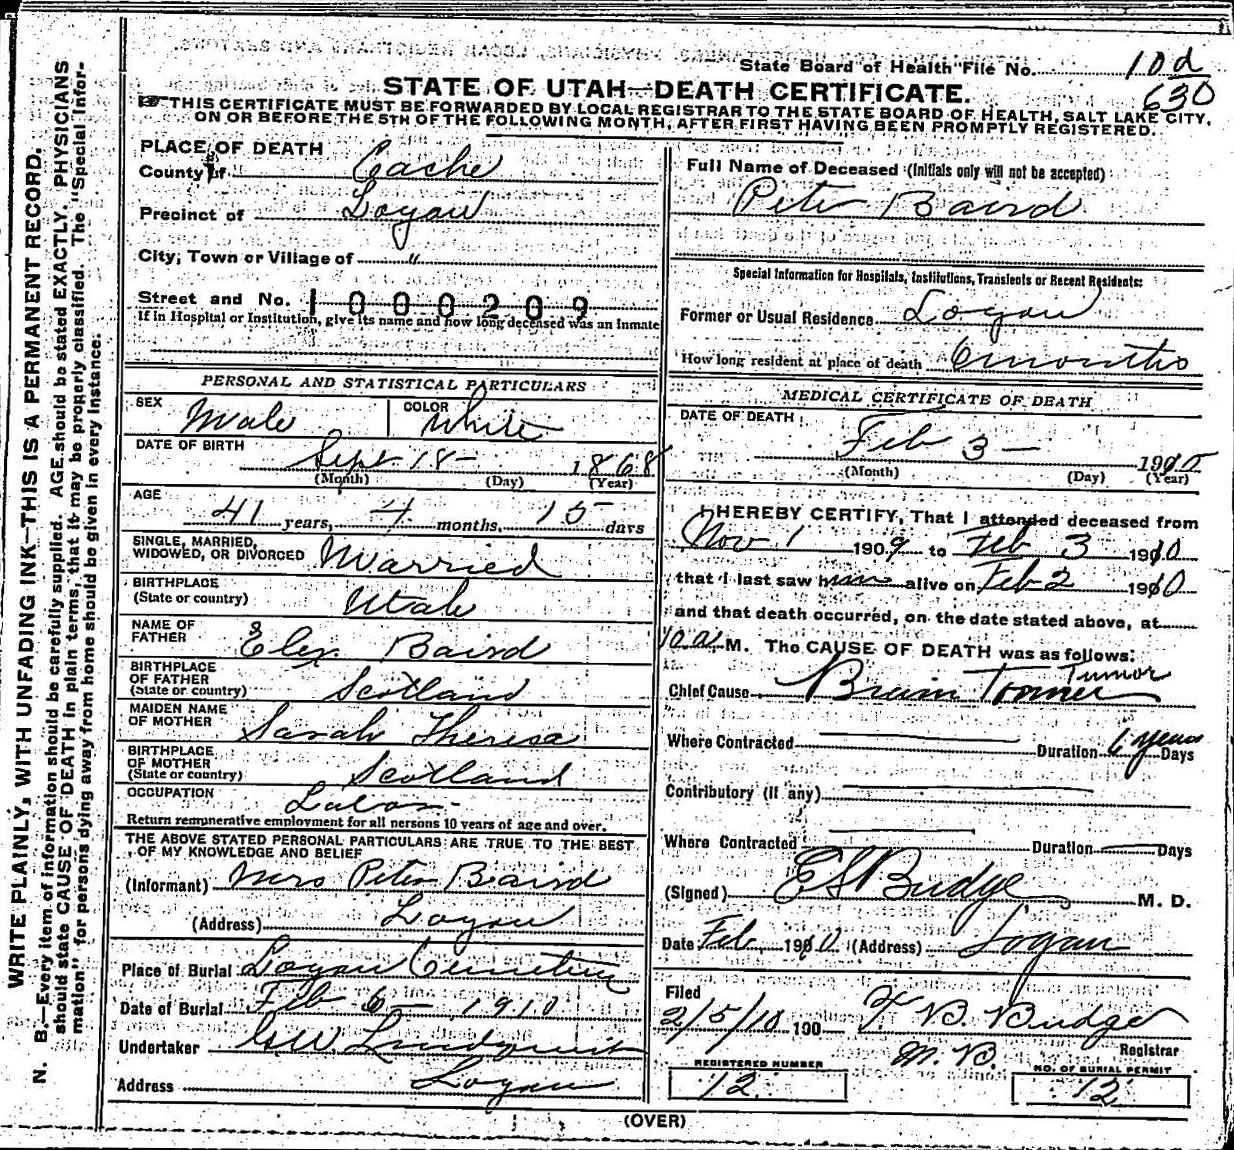 State Board of Health File No. 10 d
630
STATE OF UTAH—DEATH CERTIFICATE.
THIS CERTIFICATE MUST BE FORWARDED BY LOCAL REGISTRAR TO THE STATE BOARD OF HEALTH, SALT LAKE CITY,
ON OR BEFORE THE 5TH OF THE FOLLOWING MONTH, AFTER FIRST HAVING BEEN PROMPTLY REGISTERED.
WRITE PLAINLY, WITH UNFADING INK—THIS IS A PERMANENT RECORD.
N. B.—Every item of information should be carefully supplied. AGE should be stated EXACTLY. PHYSICIANS
should state CAUSE OF DEATH in plain terms, that it may be properly classified. The "Special Infor-
mation" for persons dying away from home should be given in every instance.
PLACE OF DEATH
County of Cache
Precinct of Logan
City, Town or Village of "
Street and No. 1000209
If in Hospital or Institution, give its name and how long deceased was an inmate
PERSONAL AND STATISTICAL PARTICULARS
SEX Male COLOR White
DATE OF BIRTH
Sept 18 - 1868
(Month) (Day) (Year)
AGE
41 years, 4 months, 15 days
SINGLE, MARRIED,
WIDOWED, OR DIVORCED Married
BIRTHPLACE
(State or country) Utah
NAME OF
FATHER Elex Baird
BIRTHPLACE
OF FATHER
(State or country) Scotland
MAIDEN NAME
OF MOTHER Sarah Theresa
BIRTHPLACE
OF MOTHER
(State or country) Scotland
OCCUPATION Labor
Return remunerative employment for all persons 10 years of age and over.
THE ABOVE STATED PERSONAL PARTICULARS ARE TRUE TO THE BEST
OF MY KNOWLEDGE AND BELIEF
(Informant) Mrs Peter Baird
(Address) Logan
Place of Burial Logan Cemetery
Date of Burial Feb 6 - 1910
Undertaker G W Lindquist
Address Logan
Full Name of Deceased (Initials only will not be accepted)
Peter Baird
Special Information for Hospitals, Institutions, Transients or Recent Residents:
Former or Usual Residence Logan
How long resident at place of death 6 months
MEDICAL CERTIFICATE OF DEATH
DATE OF DEATH
Feb 3 - 1910
(Month) (Day) (Year)
I HEREBY CERTIFY, That I attended deceased from
Nov 1 1909 to Feb 3 1910
that I last saw him alive on Feb 2 1910
and that death occurred, on the date stated above, at
10 a M. The CAUSE OF DEATH was as follows:
Tumor
Chief Cause Brain Tommer
Where Contracted Duration 6 years Days
Contributory (if any)
Where Contracted Duration Days
(Signed) E S Budge M. D.
Date Feb 1910 (Address) Logan
Filed
2/5/10 190 T. B. Budge
M. D. Registrar
REGISTERED NUMBER
12
NO. OF BURIAL PERMIT
12
(OVER)